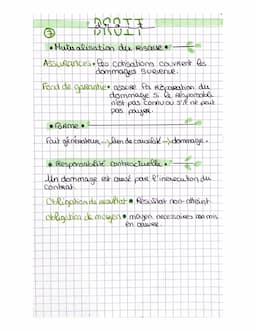 DROIT
• Mutualisation du risque •
Assurances • Les cotisations couvrent les
dommages survenue.
Fond de garantie • assure la réparation du
dommage si le responsable
n'est pas connu ou s'il ne peut
pas payer.
• Forme •
Fait générateur → lien de causalité → dommage.
• Responsabilité contractuelle •
Un dommage est causé par l'inexecution du
contrat.
Obligation de resultat • Résultat non atteint
obligation de moyen • moyen necessaires non mis
en œuvre.